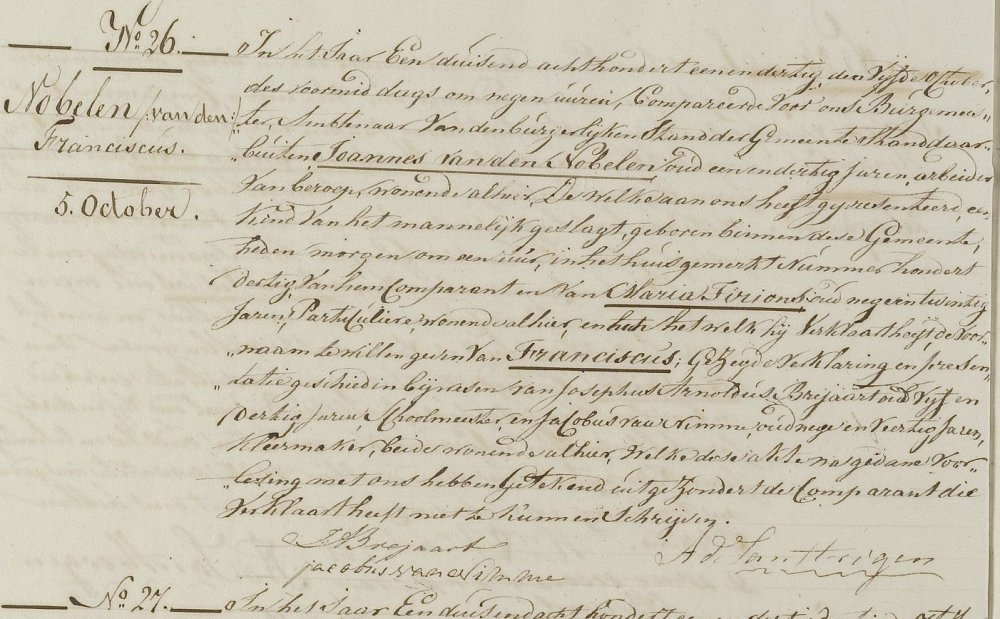 No 26.
Nobelen /: van den :/
Franciscus.
5. October.
In het Jaar Een duisend achthondert een en dertig, den Vijfde October,
des voormiddags om negen uuren, Compareerde voor ons Burgemees„
„ter, Ambtenaar van den burgerlijken Stand der Gemeente Standdaar„
„buiten, Joannes van den Nobelen, oud een en dertig Jaren, arbeider
van beroep, wonende alhier, De welke aan ons heeft gepresenteerd, een
kind van het mannelijk geslagt, geboren binnen dese Gemeente,
heden morgen om een uur, in het huis gemerkt Nummer hondert
dertig, van hem Comparant en van Maria Firions, oud negen twintig
Jaren, Particuliere, wonende alhier, en het welk hij Verklaart heeft de Voor„
„naam te willen geven van Franciscus; Gezeyde Verklaring en presen„
„tatie geschied in bijwesen van Josephus Arnoldus Brejaart oud Vijf en
dertig Jaren, Schoolmeester, en Jacobus van Nimme, oud nege en Veertig Jaren,
Kleermaker, beide wonende alhier, Welke dese akte na gedane Voor„
„lesing met ons hebben Getekend uitgezondert de Comparant die
Verklaart heeft niet te kunnen Schrijven.
JA Brejaart
jacobus van Nimme
No 27.
In het Jaar Een duisend acht hondert